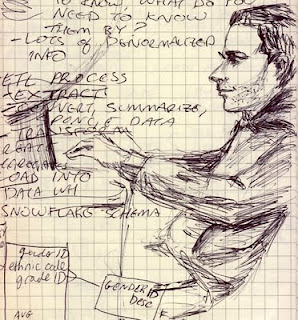 TO KNOW, WHAT DO YOU
NEED TO KNOW
THEM BY?
- LOTS OF DENORMALIZED
INFO
ETL PROCESS
- EXTRACT
- CONVERT, SUMMARIZE,
DATA
LOAD INTO
DATA WH
SNOWFLAKE SCHEMA
gender ID
ethnic code
grade ID
GENDER ID
DESC
AVG
F